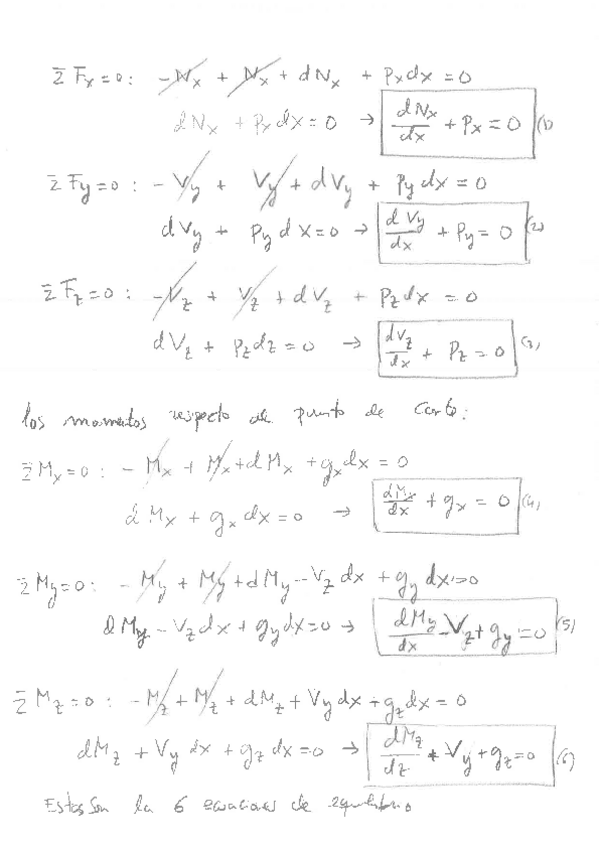 Σ Fx=0: -Nx + Nx + dNx + Pxdx = 0
dNx + Pxdx = 0 → dNx/dx + Px = 0 (1)
Σ Fy=0: -Vy + Vy + dVy + Pydx = 0
dVy + Pydx=0 → dVy/dx + Py = 0 (2)
Σ Fz=0: -Vz + Vz + dVz + Pzdx = 0
dVz + Pzdz = 0 → dVz/dx + Pz = 0 (3)
los momentos respecto de punto de corte:
Σ Mx=0: -Mx + Mx + dMx + gxdx = 0
dMx + gxdx = 0 → dMx/dx + gx = 0 (4)
Σ My=0: -My + My + dMy - Vzdx + gydx = 0
dMy - Vzdx + gydx=0 → dMy/dx - Vz + gy = 0 (5)
Σ Mz=0: -Mz + Mz + dMz + Vydx + gzdx = 0
dMz + Vydx + gzdx=0 → dMz/dz + Vy + gz=0 (6)
Estas son la 6 ecuaciones de equilibrio